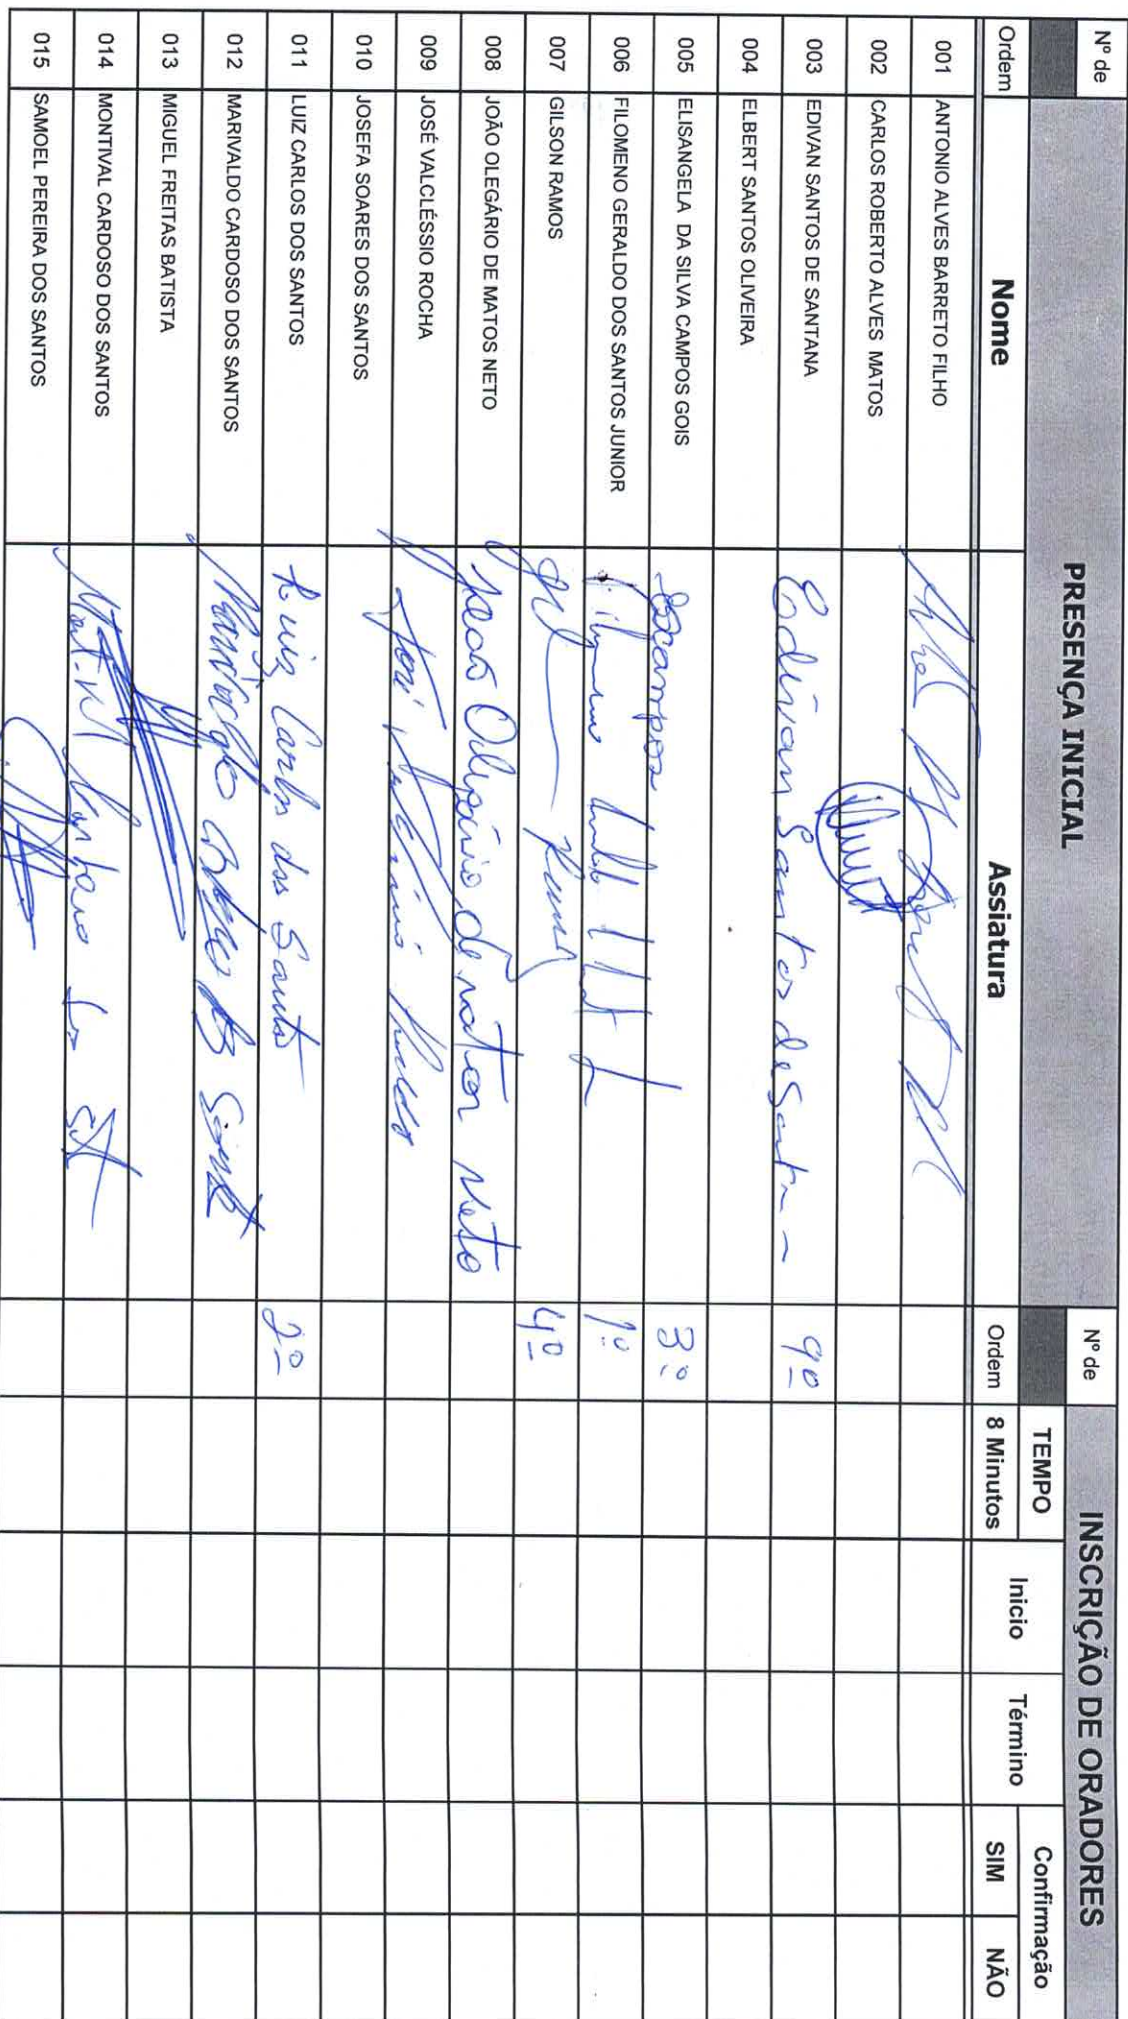 Nº de PRESENÇA INICIAL Nº de INSCRIÇÃO DE ORADORES
TEMPO Confirmação
Ordem Nome Assiatura Ordem 8 Minutos Inicio Término SIM NÃO
001 ANTONIO ALVES BARRETO FILHO
002 CARLOS ROBERTO ALVES MATOS
003 EDIVAN SANTOS DE SANTANA Edivan Santos de Santana 9º
004 ELBERT SANTOS OLIVEIRA
005 ELISANGELA DA SILVA CAMPOS GOIS escampos 3º
006 FILOMENO GERALDO DOS SANTOS JUNIOR 1º
007 GILSON RAMOS 4º
008 JOÃO OLEGÁRIO DE MATOS NETO João Olegário de matos Neto
009 JOSÉ VALCLÉSSIO ROCHA José
010 JOSEFA SOARES DOS SANTOS
011 LUIZ CARLOS DOS SANTOS Luiz Carlos dos Santos 2º
012 MARIVALDO CARDOSO DOS SANTOS
013 MIGUEL FREITAS BATISTA
014 MONTIVAL CARDOSO DOS SANTOS
015 SAMOEL PEREIRA DOS SANTOS